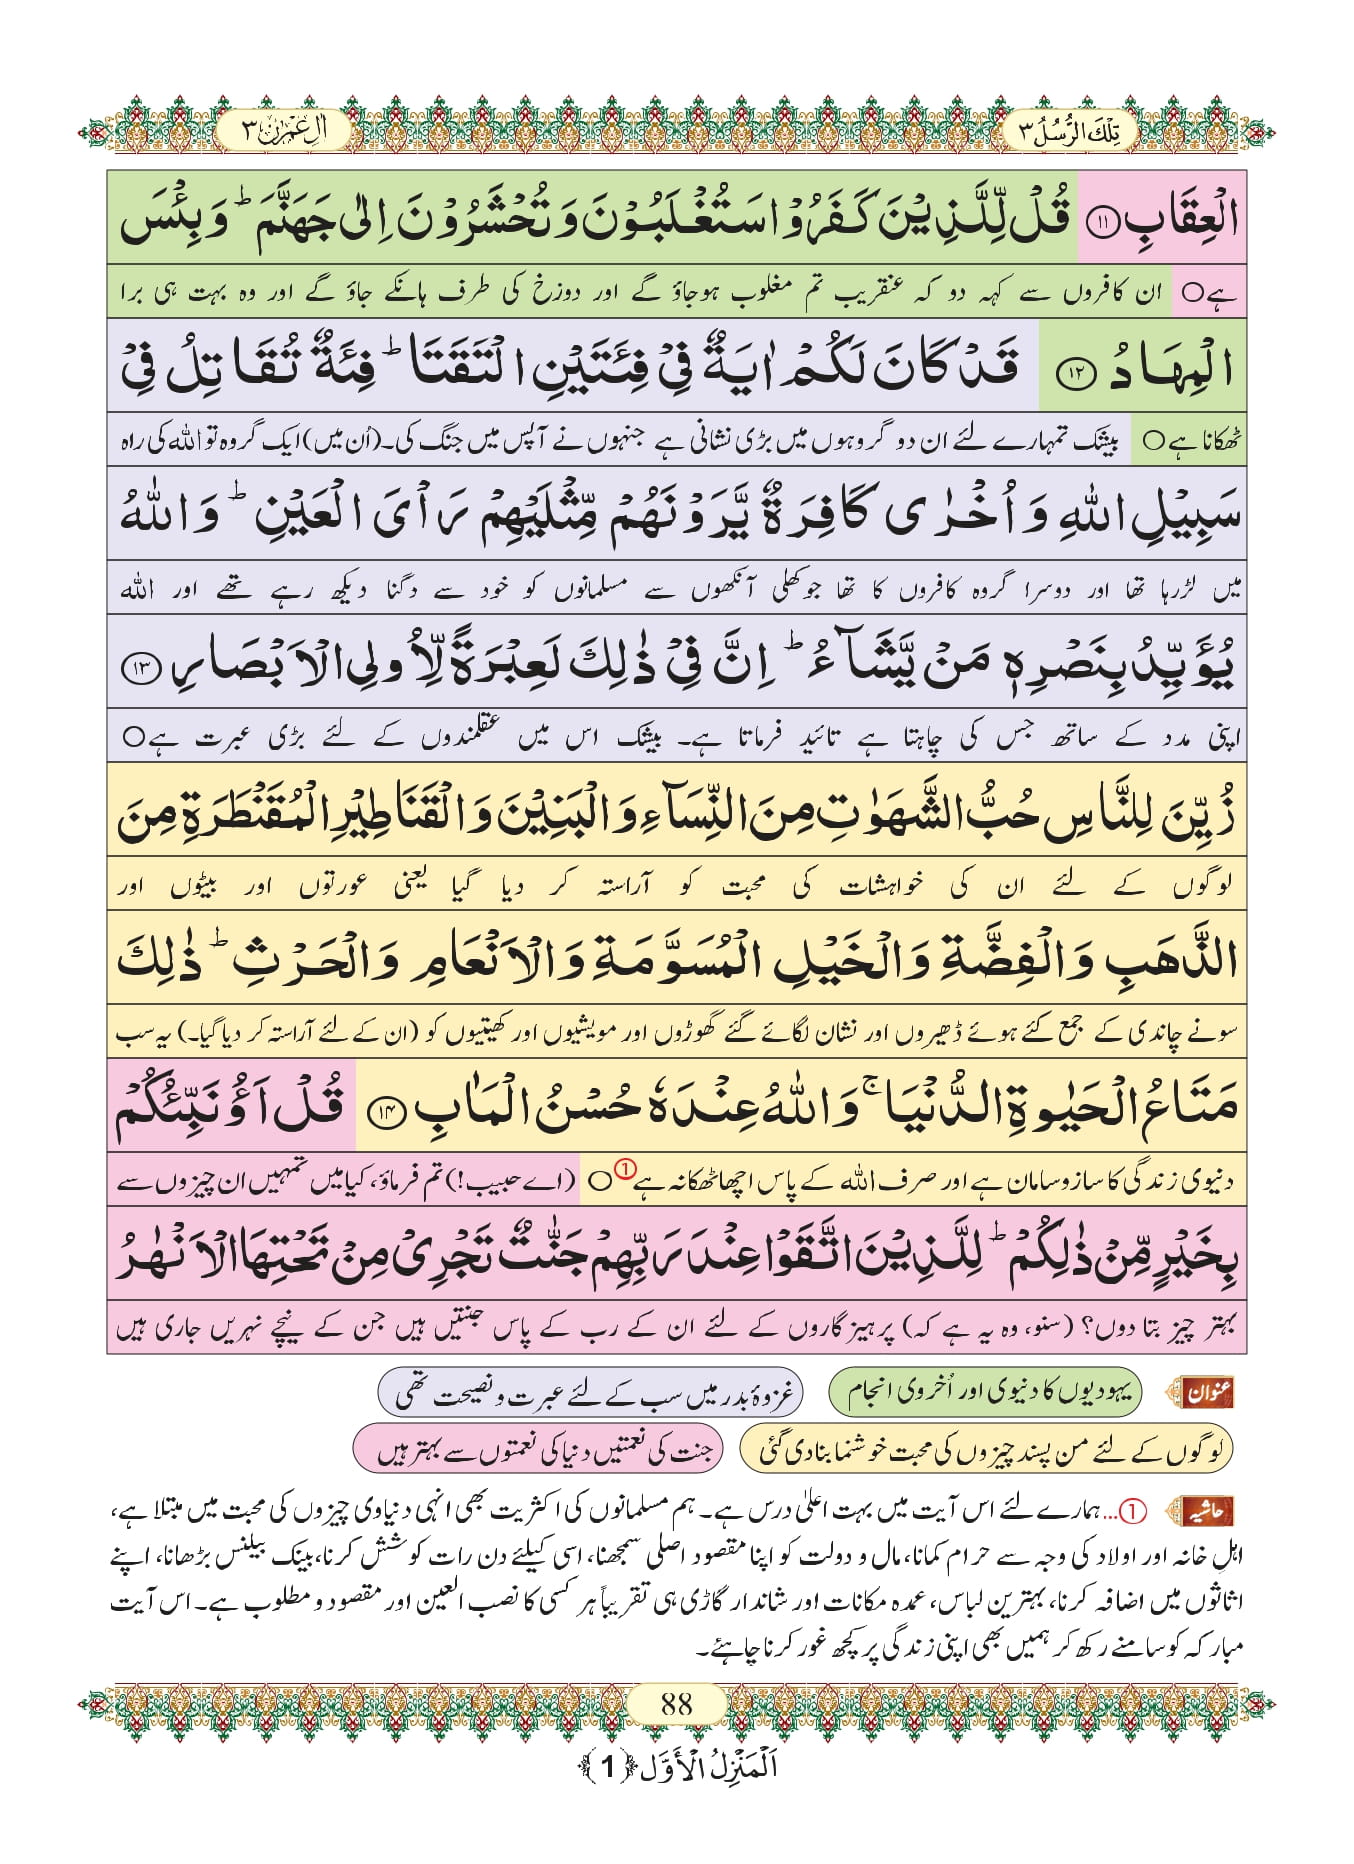 تِلْكَ الرُّسُلُ ٣
اٰلِ عِمْرٰن ٣
الْعِقَابِ ﴿١١﴾ قُلْ لِّلَّذِيْنَ كَفَرُوْا سَتُغْلَبُوْنَ وَتُحْشَرُوْنَ اِلٰى جَهَنَّمَ ؕ وَبِئْسَ
ہے○ ان کافروں سے کہہ دو کہ عنقریب تم مغلوب ہوجاؤ گے اور دوزخ کی طرف ہانکے جاؤ گے اور وہ بہت ہی برا
الْمِهَادُ ﴿١٢﴾ قَدْ كَانَ لَكُمْ اٰيَةٌ فِيْ فِئَتَيْنِ الْتَقَتَا ؕ فِئَةٌ تُقَاتِلُ فِيْ
ٹھکانا ہے○ بیشک تمہارے لئے ان دو گروہوں میں بڑی نشانی ہے جنہوں نے آپس میں جنگ کی۔ (اُن میں) ایک گروہ تو اللہ کی راہ
سَبِيْلِ اللّٰهِ وَ اُخْرٰى كَافِرَةٌ يَّرَوْنَهُمْ مِّثْلَيْهِمْ رَاْيَ الْعَيْنِ ؕ وَ اللّٰهُ
میں لڑرہا تھا اور دوسرا گروہ کافروں کا تھا جو کھلی آنکھوں سے مسلمانوں کو خود سے دگنا دیکھ رہے تھے اور اللہ
يُؤَيِّدُ بِنَصْرِهٖ مَنْ يَّشَآءُ ؕ اِنَّ فِيْ ذٰلِكَ لَعِبْرَةً لِّاُولِي الْاَبْصَارِ ﴿١٣﴾
اپنی مدد کے ساتھ جس کی چاہتا ہے تائید فرماتا ہے۔ بیشک اس میں عقلمندوں کے لئے بڑی عبرت ہے○
زُيِّنَ لِلنَّاسِ حُبُّ الشَّهَوٰتِ مِنَ النِّسَآءِ وَ الْبَنِيْنَ وَ الْقَنَاطِيْرِ الْمُقَنْطَرَةِ مِنَ
لوگوں کے لئے ان کی خواہشات کی محبت کو آراستہ کر دیا گیا یعنی عورتوں اور بیٹوں اور
الذَّهَبِ وَ الْفِضَّةِ وَ الْخَيْلِ الْمُسَوَّمَةِ وَ الْاَنْعَامِ وَ الْحَرْثِ ؕ ذٰلِكَ
سونے چاندی کے جمع کئے ہوئے ڈھیروں اور نشان لگائے گئے گھوڑوں اور مویشیوں اور کھیتیوں کو (ان کے لئے آراستہ کر دیا گیا۔) یہ سب
مَتَاعُ الْحَيٰوةِ الدُّنْيَا ۚ وَ اللّٰهُ عِنْدَهٗ حُسْنُ الْمَاٰبِ ﴿١٤﴾ قُلْ اَؤُنَبِّئُكُمْ
دنیوی زندگی کا سازوسامان ہے اور صرف اللہ کے پاس اچھا ٹھکانہ ہے①○ (اے حبیب!) تم فرماؤ، کیا میں تمہیں ان چیزوں سے
بِخَيْرٍ مِّنْ ذٰلِكُمْ ؕ لِلَّذِيْنَ اتَّقَوْا عِنْدَ رَبِّهِمْ جَنّٰتٌ تَجْرِيْ مِنْ تَحْتِهَا الْاَنْهٰرُ
بہتر چیز بتا دوں؟ (سنو، وہ یہ ہے کہ) پرہیزگاروں کے لئے ان کے رب کے پاس جنتیں ہیں جن کے نیچے نہریں جاری ہیں
عنوان یہودیوں کا دنیوی اور اُخروی انجام غزوۂ بدر میں سب کے لئے عبرت و نصیحت تھی
لوگوں کے لئے من پسند چیزوں کی محبت خوشنما بنادی گئی جنت کی نعمتیں دنیا کی نعمتوں سے بہتر ہیں
حاشیہ ①... ہمارے لئے اس آیت میں بہت اعلیٰ درس ہے۔ ہم مسلمانوں کی اکثریت بھی انہی دنیاوی چیزوں کی محبت میں مبتلا ہے،
اہلِ خانہ اور اولاد کی وجہ سے حرام کمانا، مال و دولت کو اپنا مقصود اصلی سمجھنا، اسی کیلئے دن رات کوشش کرنا، بینک بیلنس بڑھانا، اپنے
اثاثوں میں اضافہ کرنا، بہترین لباس، عمدہ مکانات اور شاندار گاڑی ہی تقریباً ہر کسی کا نصب العین اور مقصود و مطلوب ہے۔ اس آیت
مبارکہ کو سامنے رکھ کر ہمیں بھی اپنی زندگی پر کچھ غور کرنا چاہئے۔
88
اَلْمَنْزِلُ الْأَوَّل ﴿1﴾